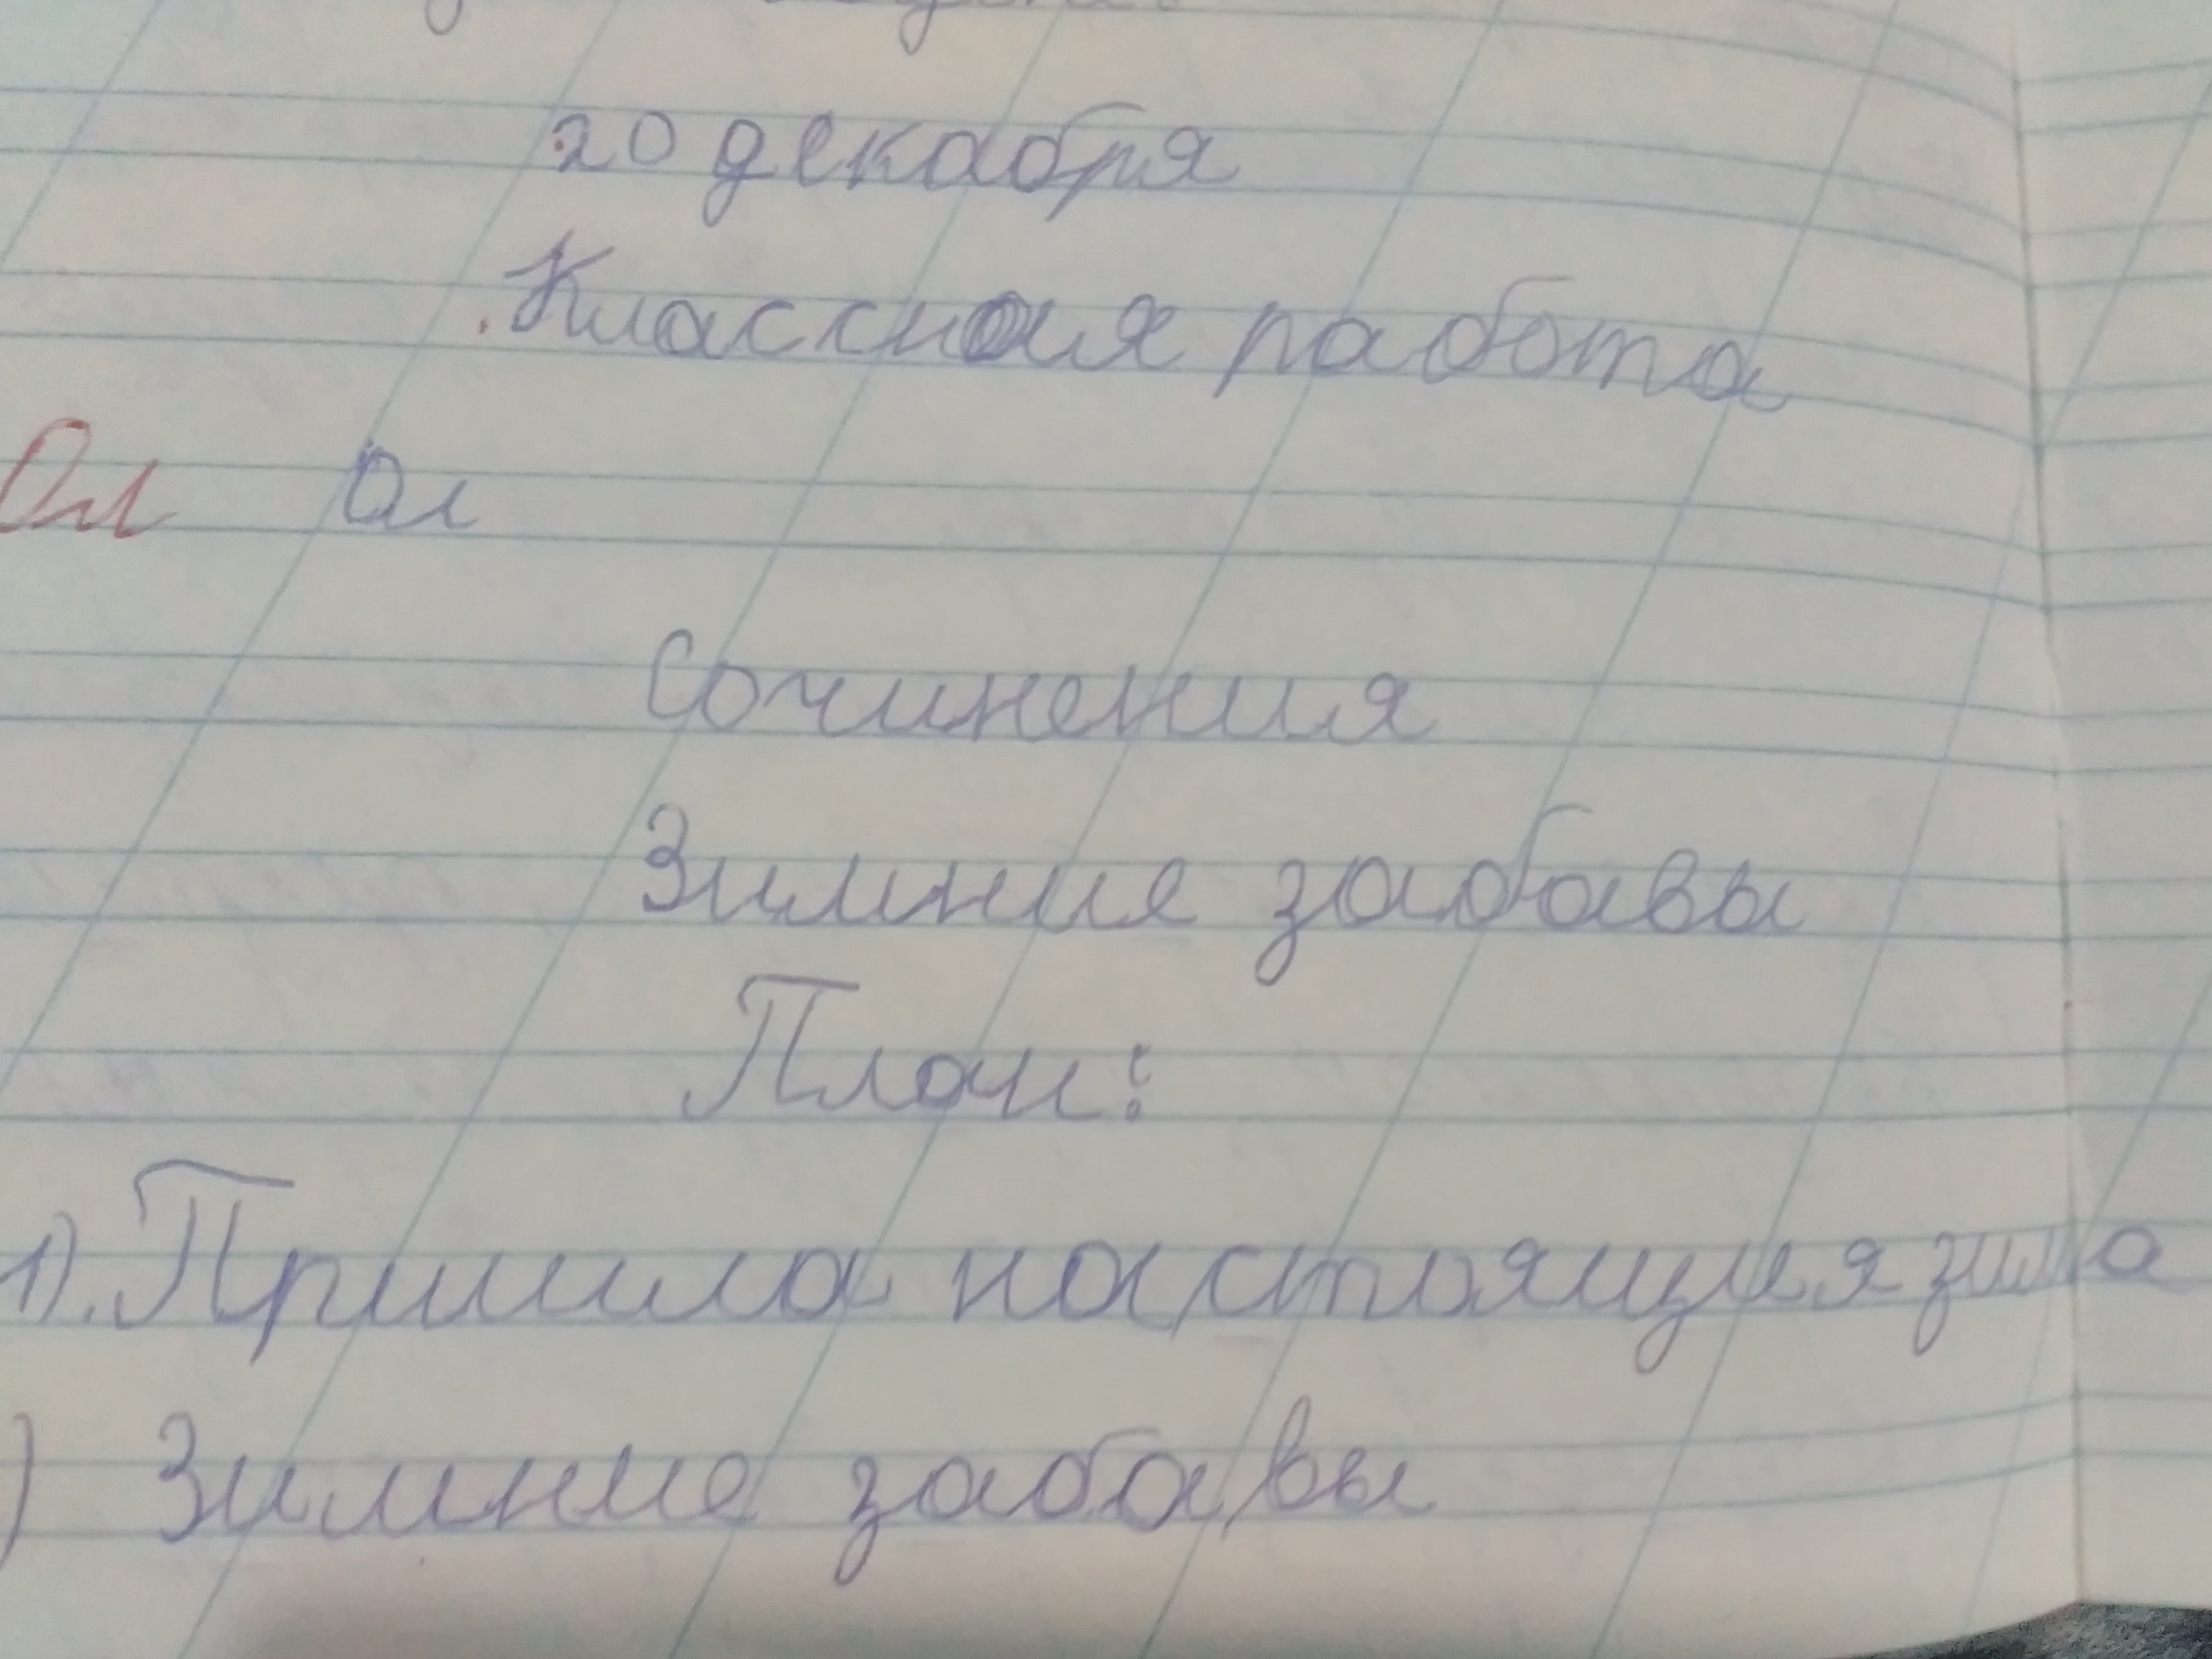 20 декабря
Классная работа
Ол Ол
Сочинения
Зимние забавы
План:
1). Пришла настоящия зима
) Зимние забавы